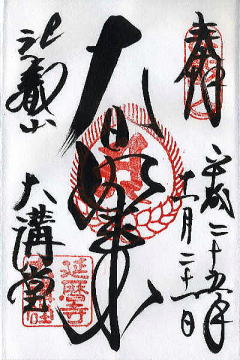 奉拝
平成二十五年
十一月二十一日
大日如来
比叡山
大講堂
延暦寺